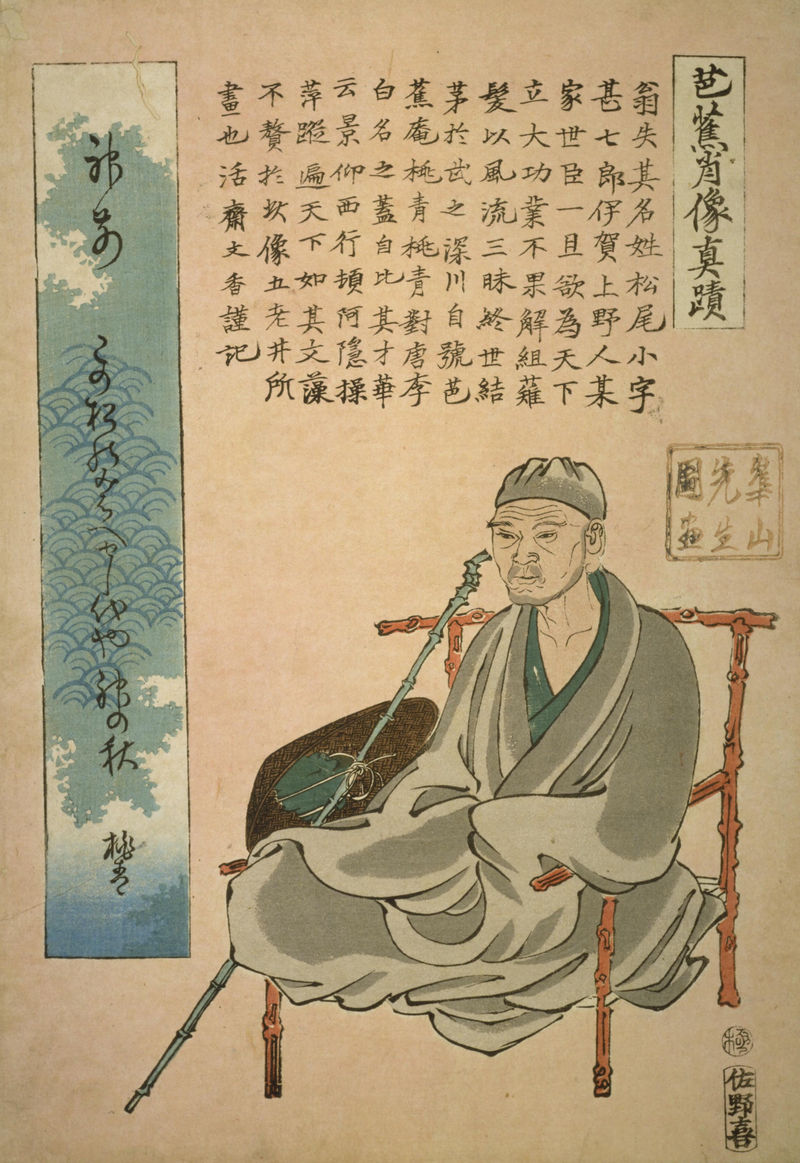 芭蕉肖像真蹟
翁失其名姓松尾小字
甚七郎伊賀上野人某
家世臣一旦欲為天下
立大功業不果解組薙
髮以風流三昧終世結
茅於武之深川自號芭
蕉庵桃青桃青對唐李
白名之蓋自比其才華
云景仰西行頓阿隱操
萍蹤遍天下如其文藻
不贅於像五老井所
畫也活齋文香謹記
神前
この松のみはへせし代や神の秋
桃青
崋山
先生
圖画
極
佐野喜